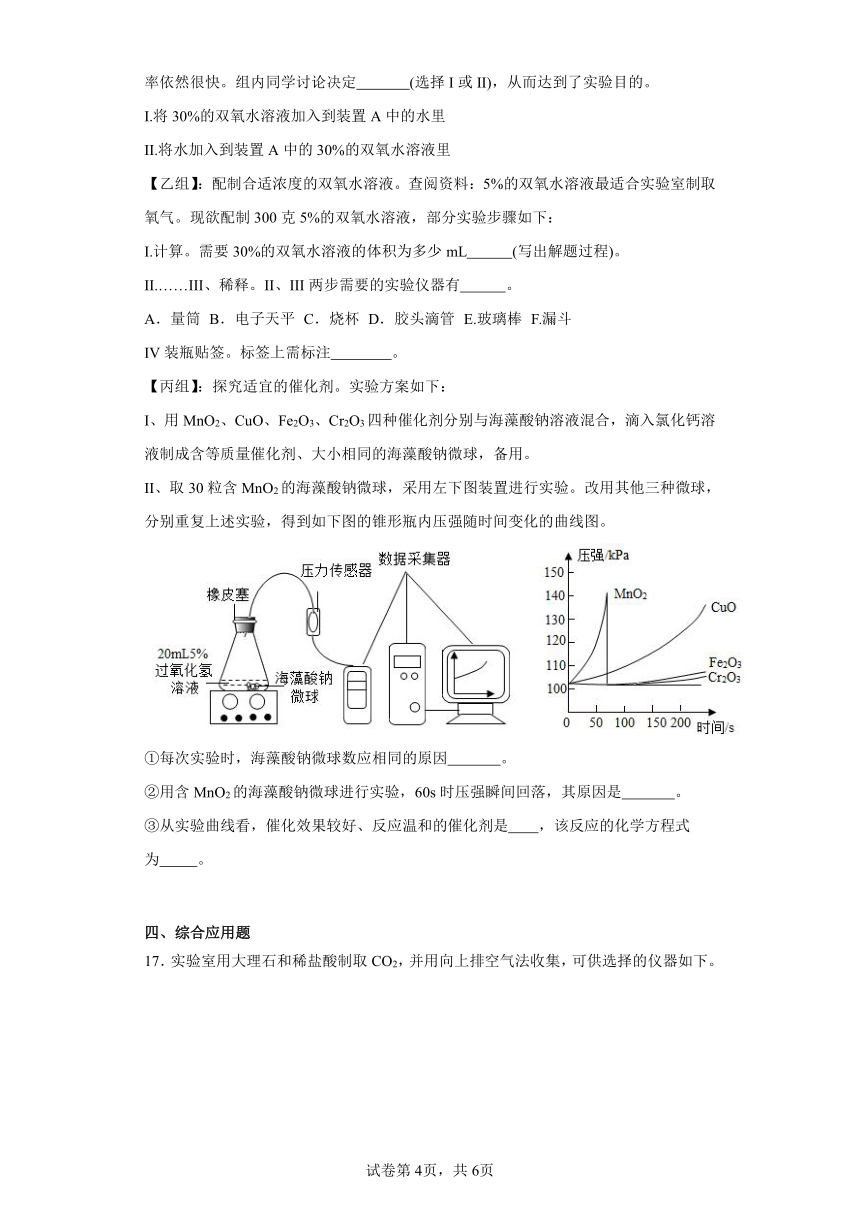 率依然很快。组内同学讨论决定_______(选择 I 或 II)，从而达到了实验目的。
I.将 30%的双氧水溶液加入到装置 A 中的水里
II.将水加入到装置 A 中的 30%的双氧水溶液里
【乙组】：配制合适浓度的双氧水溶液。查阅资料：5%的双氧水溶液最适合实验室制取
氧气。现欲配制 300 克 5%的双氧水溶液，部分实验步骤如下：
I.计算。需要 30%的双氧水溶液的体积为多少 mL______(写出解题过程)。
II.……III、稀释。II、III 两步需要的实验仪器有______。
A．量筒 B．电子天平 C．烧杯 D．胶头滴管 E.玻璃棒 F.漏斗
IV 装瓶贴签。标签上需标注________。
【丙组】：探究适宜的催化剂。实验方案如下：
I、用 MnO₂、CuO、Fe₂O₃、Cr₂O₃ 四种催化剂分别与海藻酸钠溶液混合，滴入氯化钙溶
液制成含等质量催化剂、大小相同的海藻酸钠微球，备用。
II、取 30 粒含 MnO₂ 的海藻酸钠微球，采用左下图装置进行实验。改用其他三种微球，
分别重复上述实验，得到如下图的锥形瓶内压强随时间变化的曲线图。
数据采集器
压力传感器
橡皮塞
20mL5%
过氧化氢
溶液
海藻酸钠
微球
压强/kPa
150
140
130
120
110
100
MnO₂
CuO
Fe₂O₃
Cr₂O₃
0 50 100 150 200
时间/s
①每次实验时，海藻酸钠微球数应相同的原因_______。
②用含 MnO₂ 的海藻酸钠微球进行实验，60s 时压强瞬间回落，其原因是_______。
③从实验曲线看，催化效果较好、反应温和的催化剂是____，该反应的化学方程式
为_____。
四、综合应用题
17．实验室用大理石和稀盐酸制取 CO₂，并用向上排空气法收集，可供选择的仪器如下。
试卷第 4页，共 6页